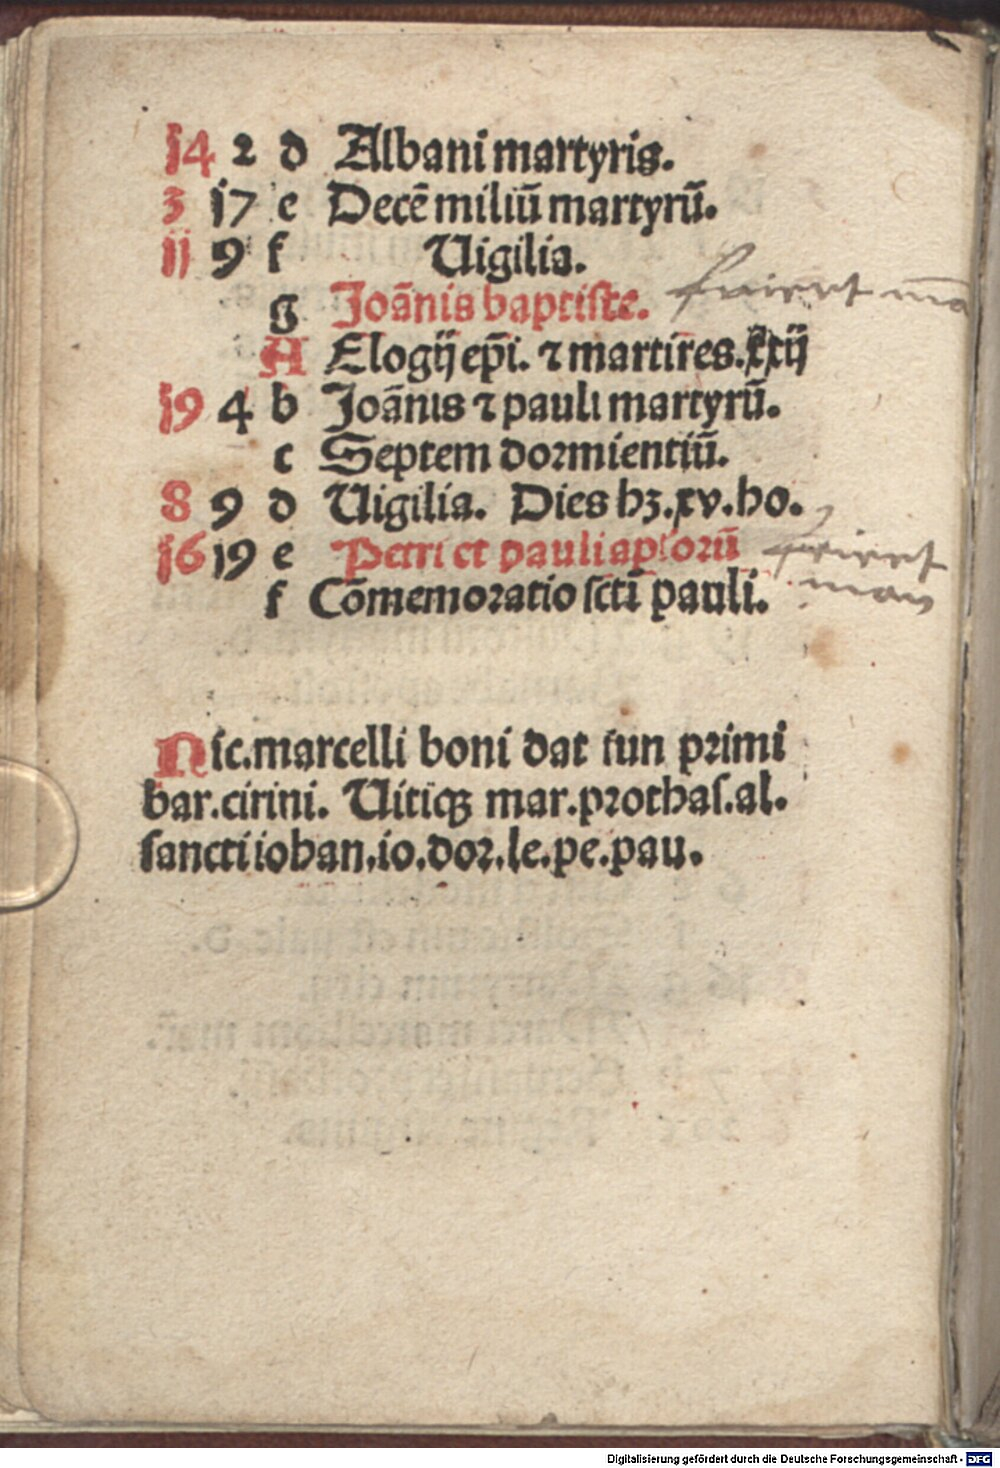 14 2 d Albani martyris.
3 17 e Decē miliū martyrū.
11 9 f Uigilia.
g Joānis baptiste. feiert man
A Elogij ep̄i. ⁊ martir̄es. xxij
19 4 b Joānis ⁊ pauli martyrū.
c Septem dormientiū.
8 9 d Uigilia. Dies hꝫ. xv. ho.
16 19 e Petri et pauli apl̄orū feiert man
f Cōmemoratio sctī pauli.
Nic. marcelli boni dat iun primi
bar. cirini. Uitiqꝫ mar. prothas. al.
sancti iohan. io. dor. le. pe. pau.
Digitalisierung gefördert durch die Deutsche Forschungsgemeinschaft - DFG